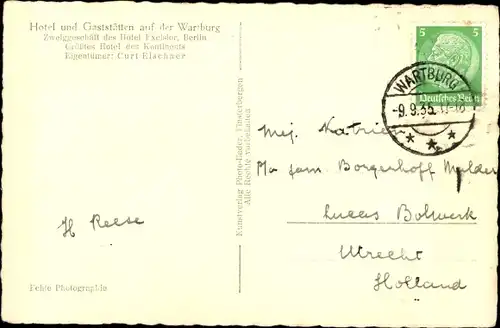 Hotel und Gaststätten auf der Wartburg
Zweiggeschäft des Hotel Excelsior, Berlin
Größtes Hotel des Kontinents
Eigentümer: Curt Elschner
5 5
Deutsches Reich
WARTBURG
-9.9.35.11-18
* * *
Mej. Katrien
p/a fam Borgerhoff Mulder
Lucas Bolwerk
Utrecht
Holland
H Reese
Kunstverlag Photo-Rader, Finsterbergen
Alle Rechte vorbehalten
Echte Photographie